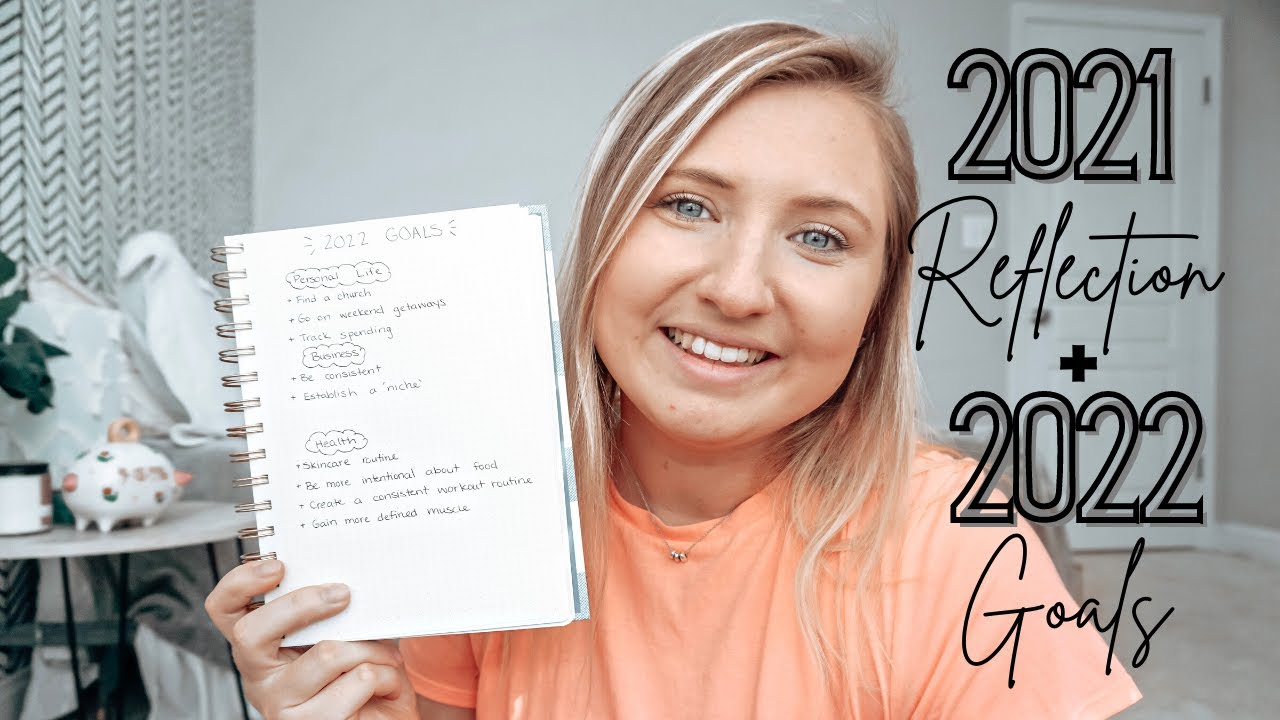 2022 GOALS
Personal Life
+ Find a church
+ Go on weekend getaways
+ Track spending
Business
+ Be consistent
+ Establish a 'niche'
Health
+ Skincare routine
+ Be more intentional about food
+ Create a consistent workout routine
+ Gain more defined muscle
2021
Reflection
+
2022
Goals